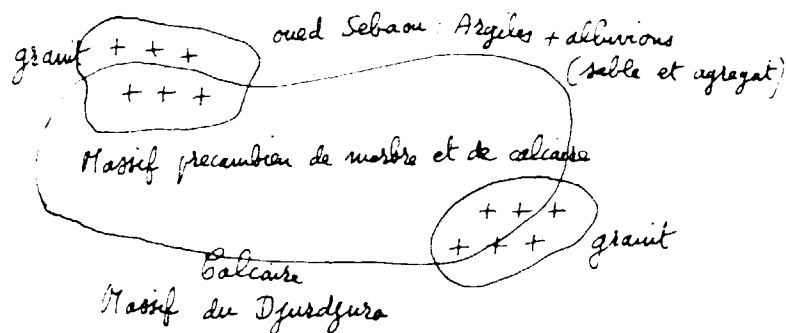 oued Sebaou : Argiles + alluvions
(sable et agregat)
granit
+ + +
+ + +
Massif precambien de marbre et de calcaire
+ + +
+ + +
granit
Calcaire
Massif du Djurdjura